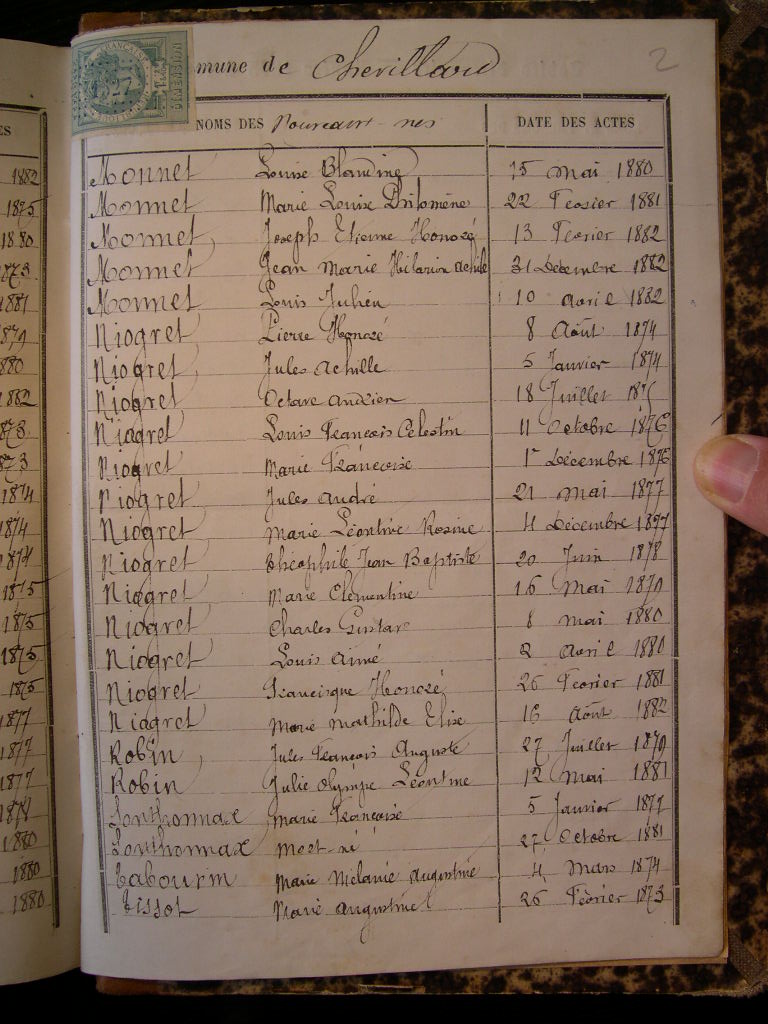 mune de Chevillard 2
NOMS DES Nouveaux-nés DATE DES ACTES
Monnet Louise Blandine 15 Mai 1880
Monnet Marie Louise Philomène 22 Fevrier 1881
Monnet Joseph Etienne Honoré 13 Fevrier 1882
Monnet Jean Marie Hilarion Achile 31 Décembre 1882
Monnet Louis Julien 10 avril 1882
Niogret Pierre Honoré 8 Août 1874
Niogret Jules Achille 5 Janvier 1874
Niogret Octave 18 Juillet
Niogret Louis Francois Celestin 11 Octobre 1876
Niogret Marie Françoise 1er Décembre 1876
Niogret Jules André 21 Mai 1877
Niogret Marie Léontine Rosine 4 Décembre 1877
Niogret Théophile Jean Baptiste 20 Juin 1878
Niogret Marie Clémentine 16 Mai 1879
Niogret Charles Gustave 8 mai 1880
Niogret Louis Aimé 2 avril 1880
Niogret Francisque Honoré 26 Fevrier 1881
Niogret Marie Mathilde Elise 16 Août 1882
Robin Jules François Auguste 27 Juillet 1879
Robin Julie Olympe Léontine 12 Mai 1881
Sonthonnax Marie Françoise 5 Janvier 1877
Sonthonnax mort-né 27 Octobre 1881
Tabourin Marie Mélanie Augustine 4 Mars 1874
Tissot Marie Augustine 26 Fèvrier 1873
ES
1882
1875
1880
1873
1881
1879
880
1882
873
873
1874
1874
1874
1875
1875
1875
1875
1877
1877
1877
1878
1880
1880
1880